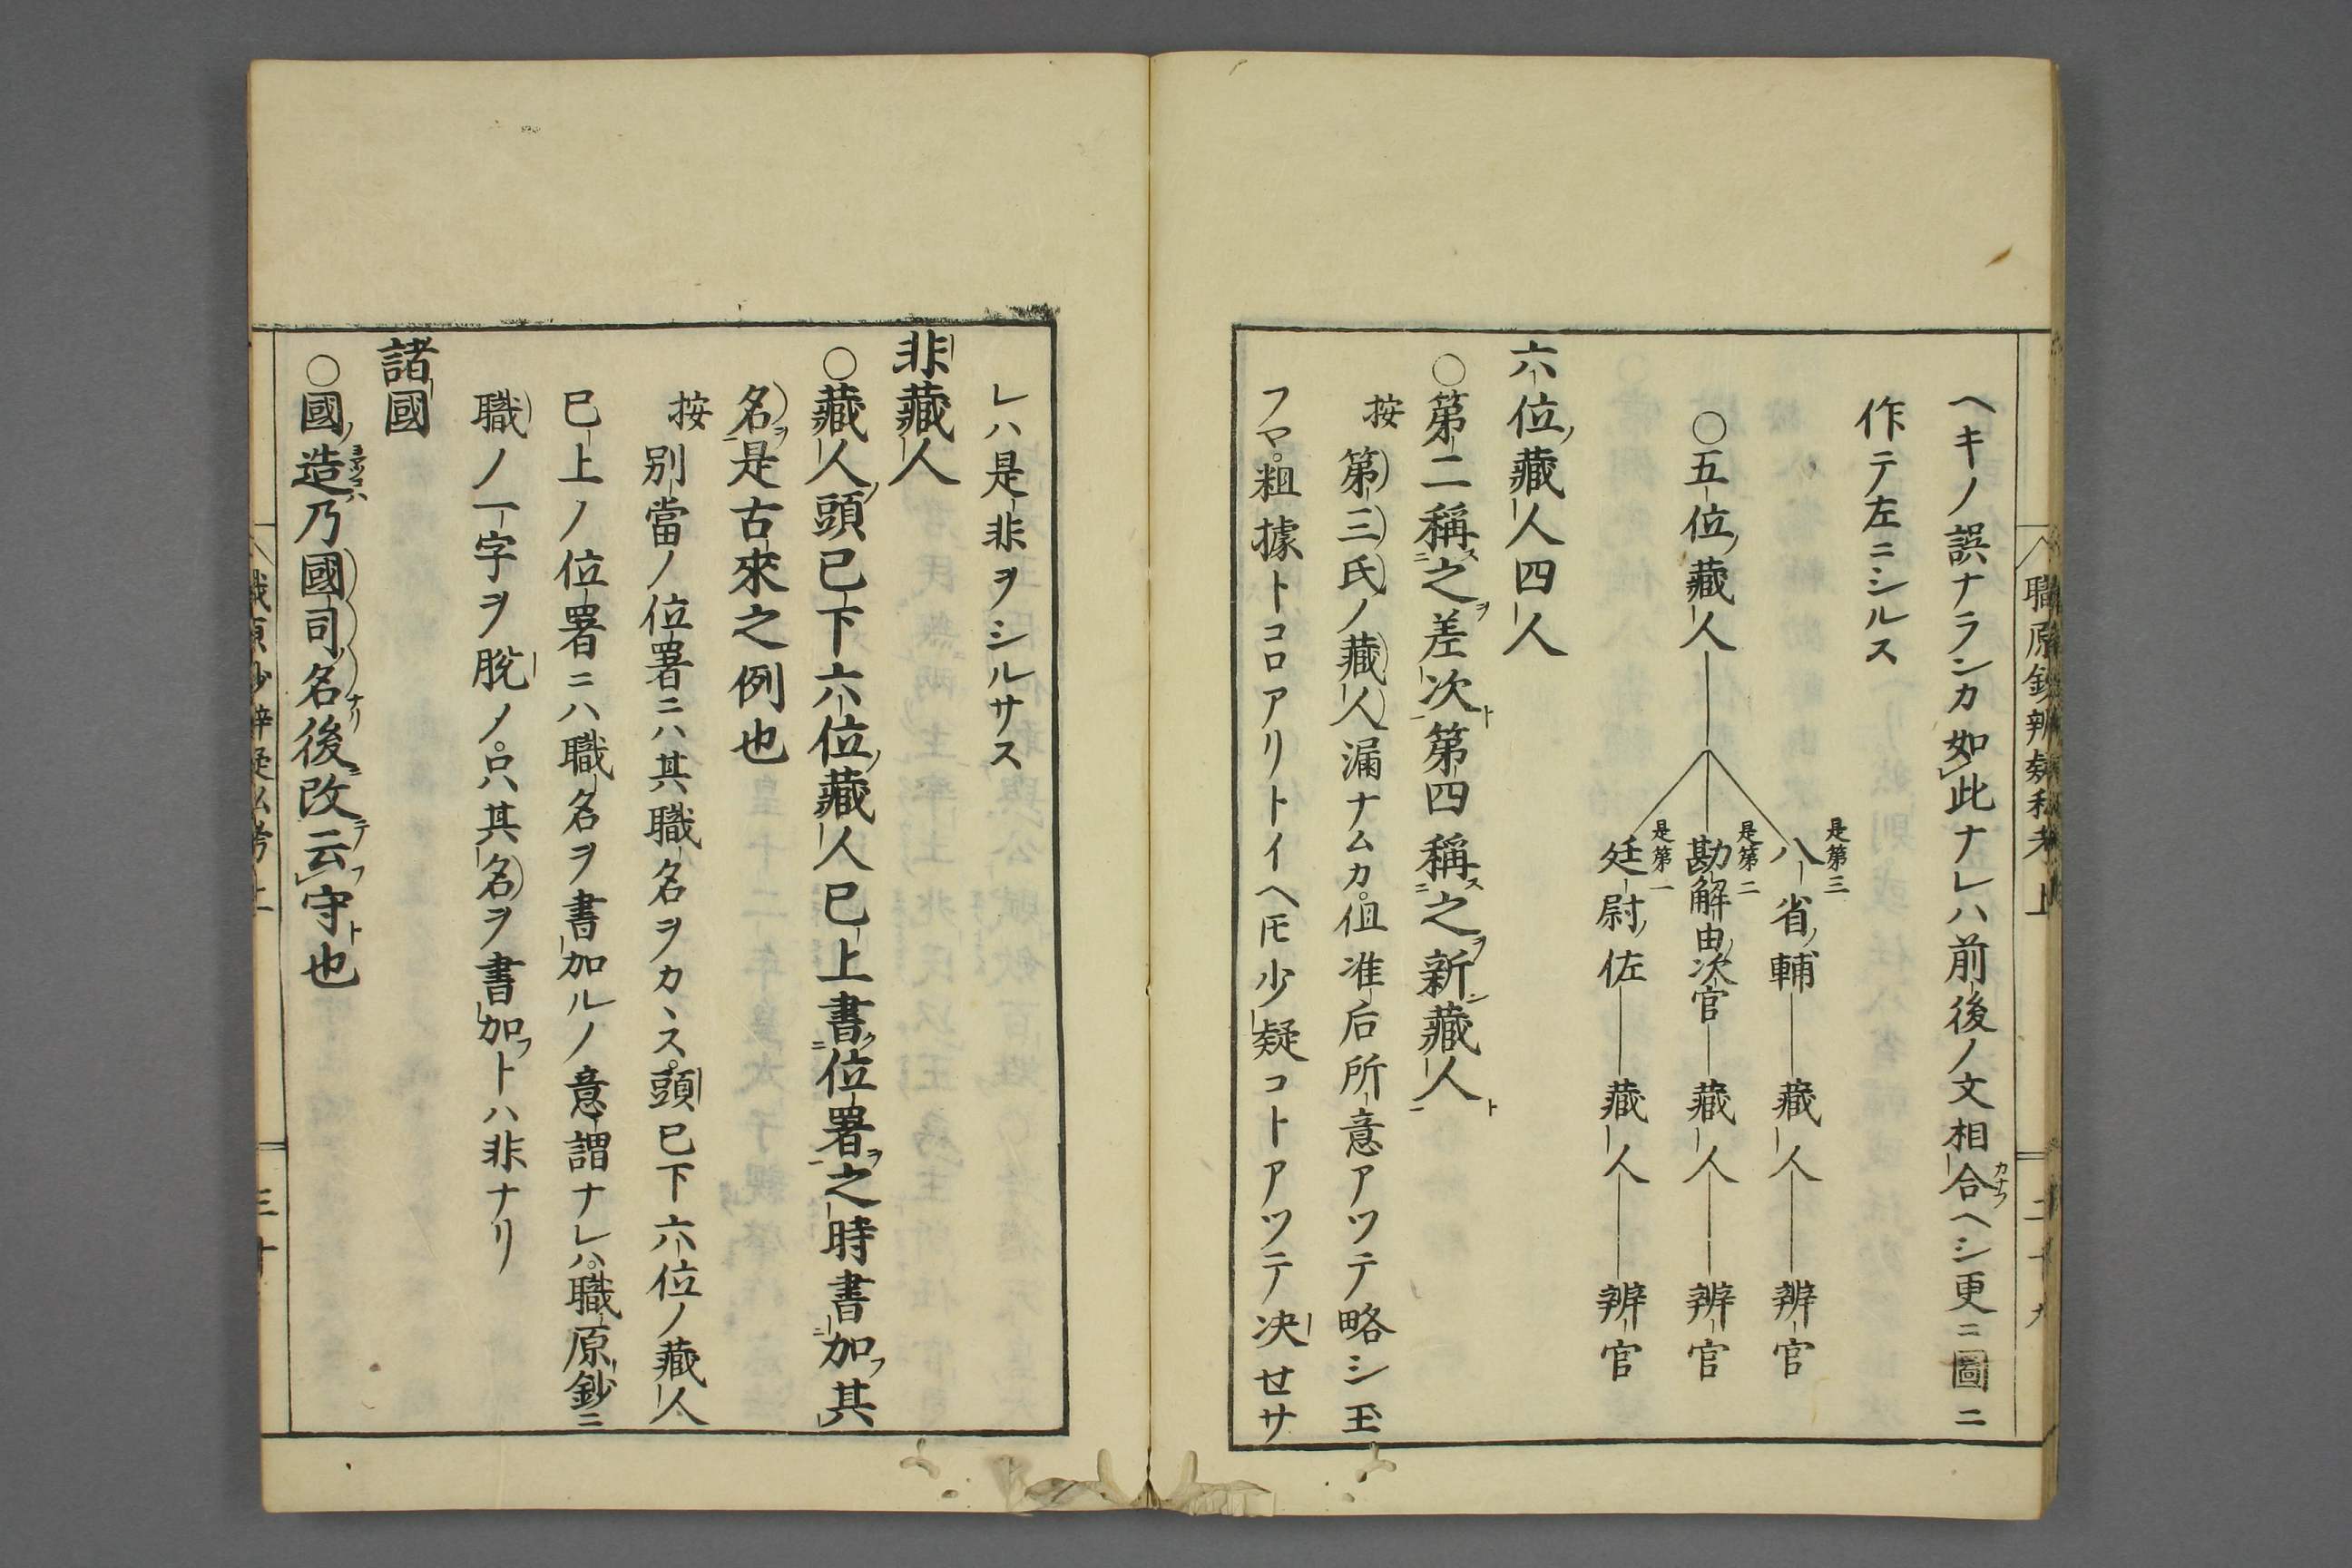 職原鈔辨疑私考上
ヘキノ誤ナランカ如此ナレハ前後ノ文相合ヘシ更ニ圖ニ
カナフ
作テ左ニシルス
〇五位ノ藏人
是第三
八省ノ輔 藏人 辨官
是第二
勘解由ノ次官 藏人 辨官
是第一
廷尉ノ佐 藏人 辨官
六位ノ藏人四人
〇第二稱スル之ヲ差次ト第四稱ス之ヲ新藏人ト
按
第三氏ノ藏人漏ナムカ。但准后所意アツテ略シ玉
フマ。粗據トコロアリトイヘ𪜈少疑コトアツテ决セサ
レハ是非ヲシルサス
非藏人
〇藏人ノ頭已下六位ノ藏人已上書ク位署ヲ之時書加フ其
名ヲ是古來之例也
按
別當ノ位署ニハ其職名ヲカヽス。頭已下六位ノ藏人
已上ノ位署ニハ職名ヲ書加ルノ意謂ナレハ。職原鈔ニ
職ノ一字ヲ脫ノ。只其名ヲ書加フトハ非ナリ
諸國
〇國ノ造乃國司ノ名ナリ後ニ改テ云フ守ト也
職原鈔辨疑私考上
三十